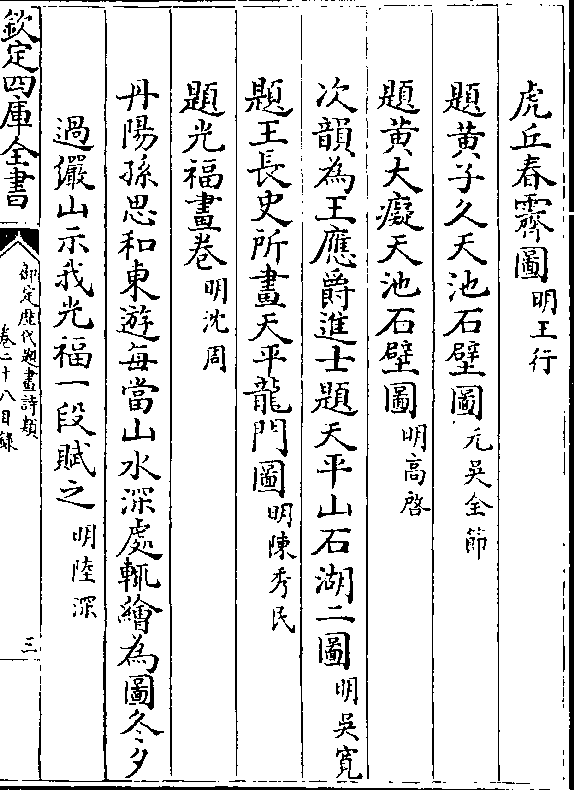 虎丘春霽圖明王行
題黃子久天池石壁圖元吳全節
題黃大癡天池石壁圖明高啓
次韻為王應爵進士題天平山石湖二圖明吳寛
題王長史所畫天平龍門圖明陳秀民
題光福畫卷明沈周
丹陽孫思和東遊每當山水深處輒繪為圖冬夕
過儼山示我光福一段賦之明陸深
欽定四庫全書
御定歴代題畫詩類
卷二十八目録
三